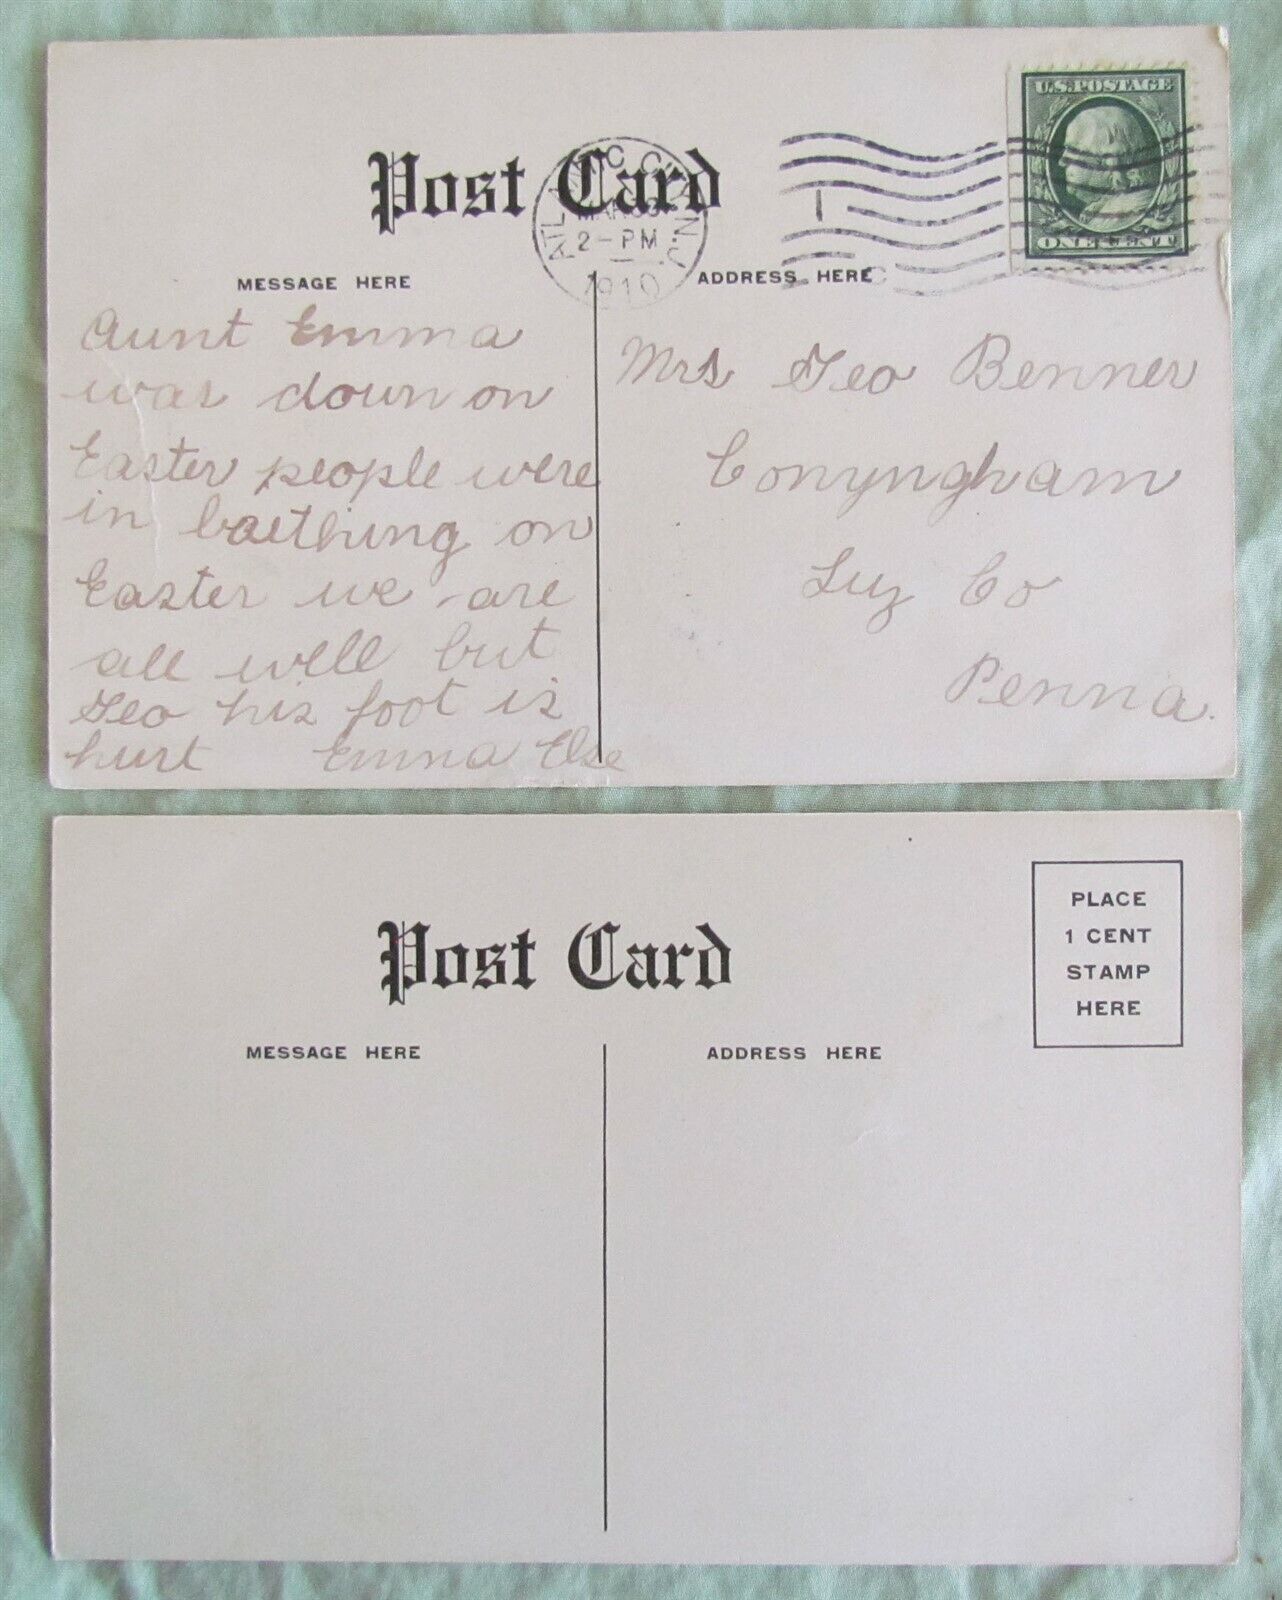 Post Card
ATLANTIC CITY N.J.
MAR 30
2-PM
1910
U.S. POSTAGE
ONE CENT
MESSAGE HERE
ADDRESS HERE
Aunt Emma
was down on
Easter people were
in baething on
Easter we are
all well but
Geo his foot is
hurt Emma Else
Mrs Geo Benner
Conyngham
Luz Co
Penna.
Post Card
PLACE
1 CENT
STAMP
HERE
MESSAGE HERE
ADDRESS HERE